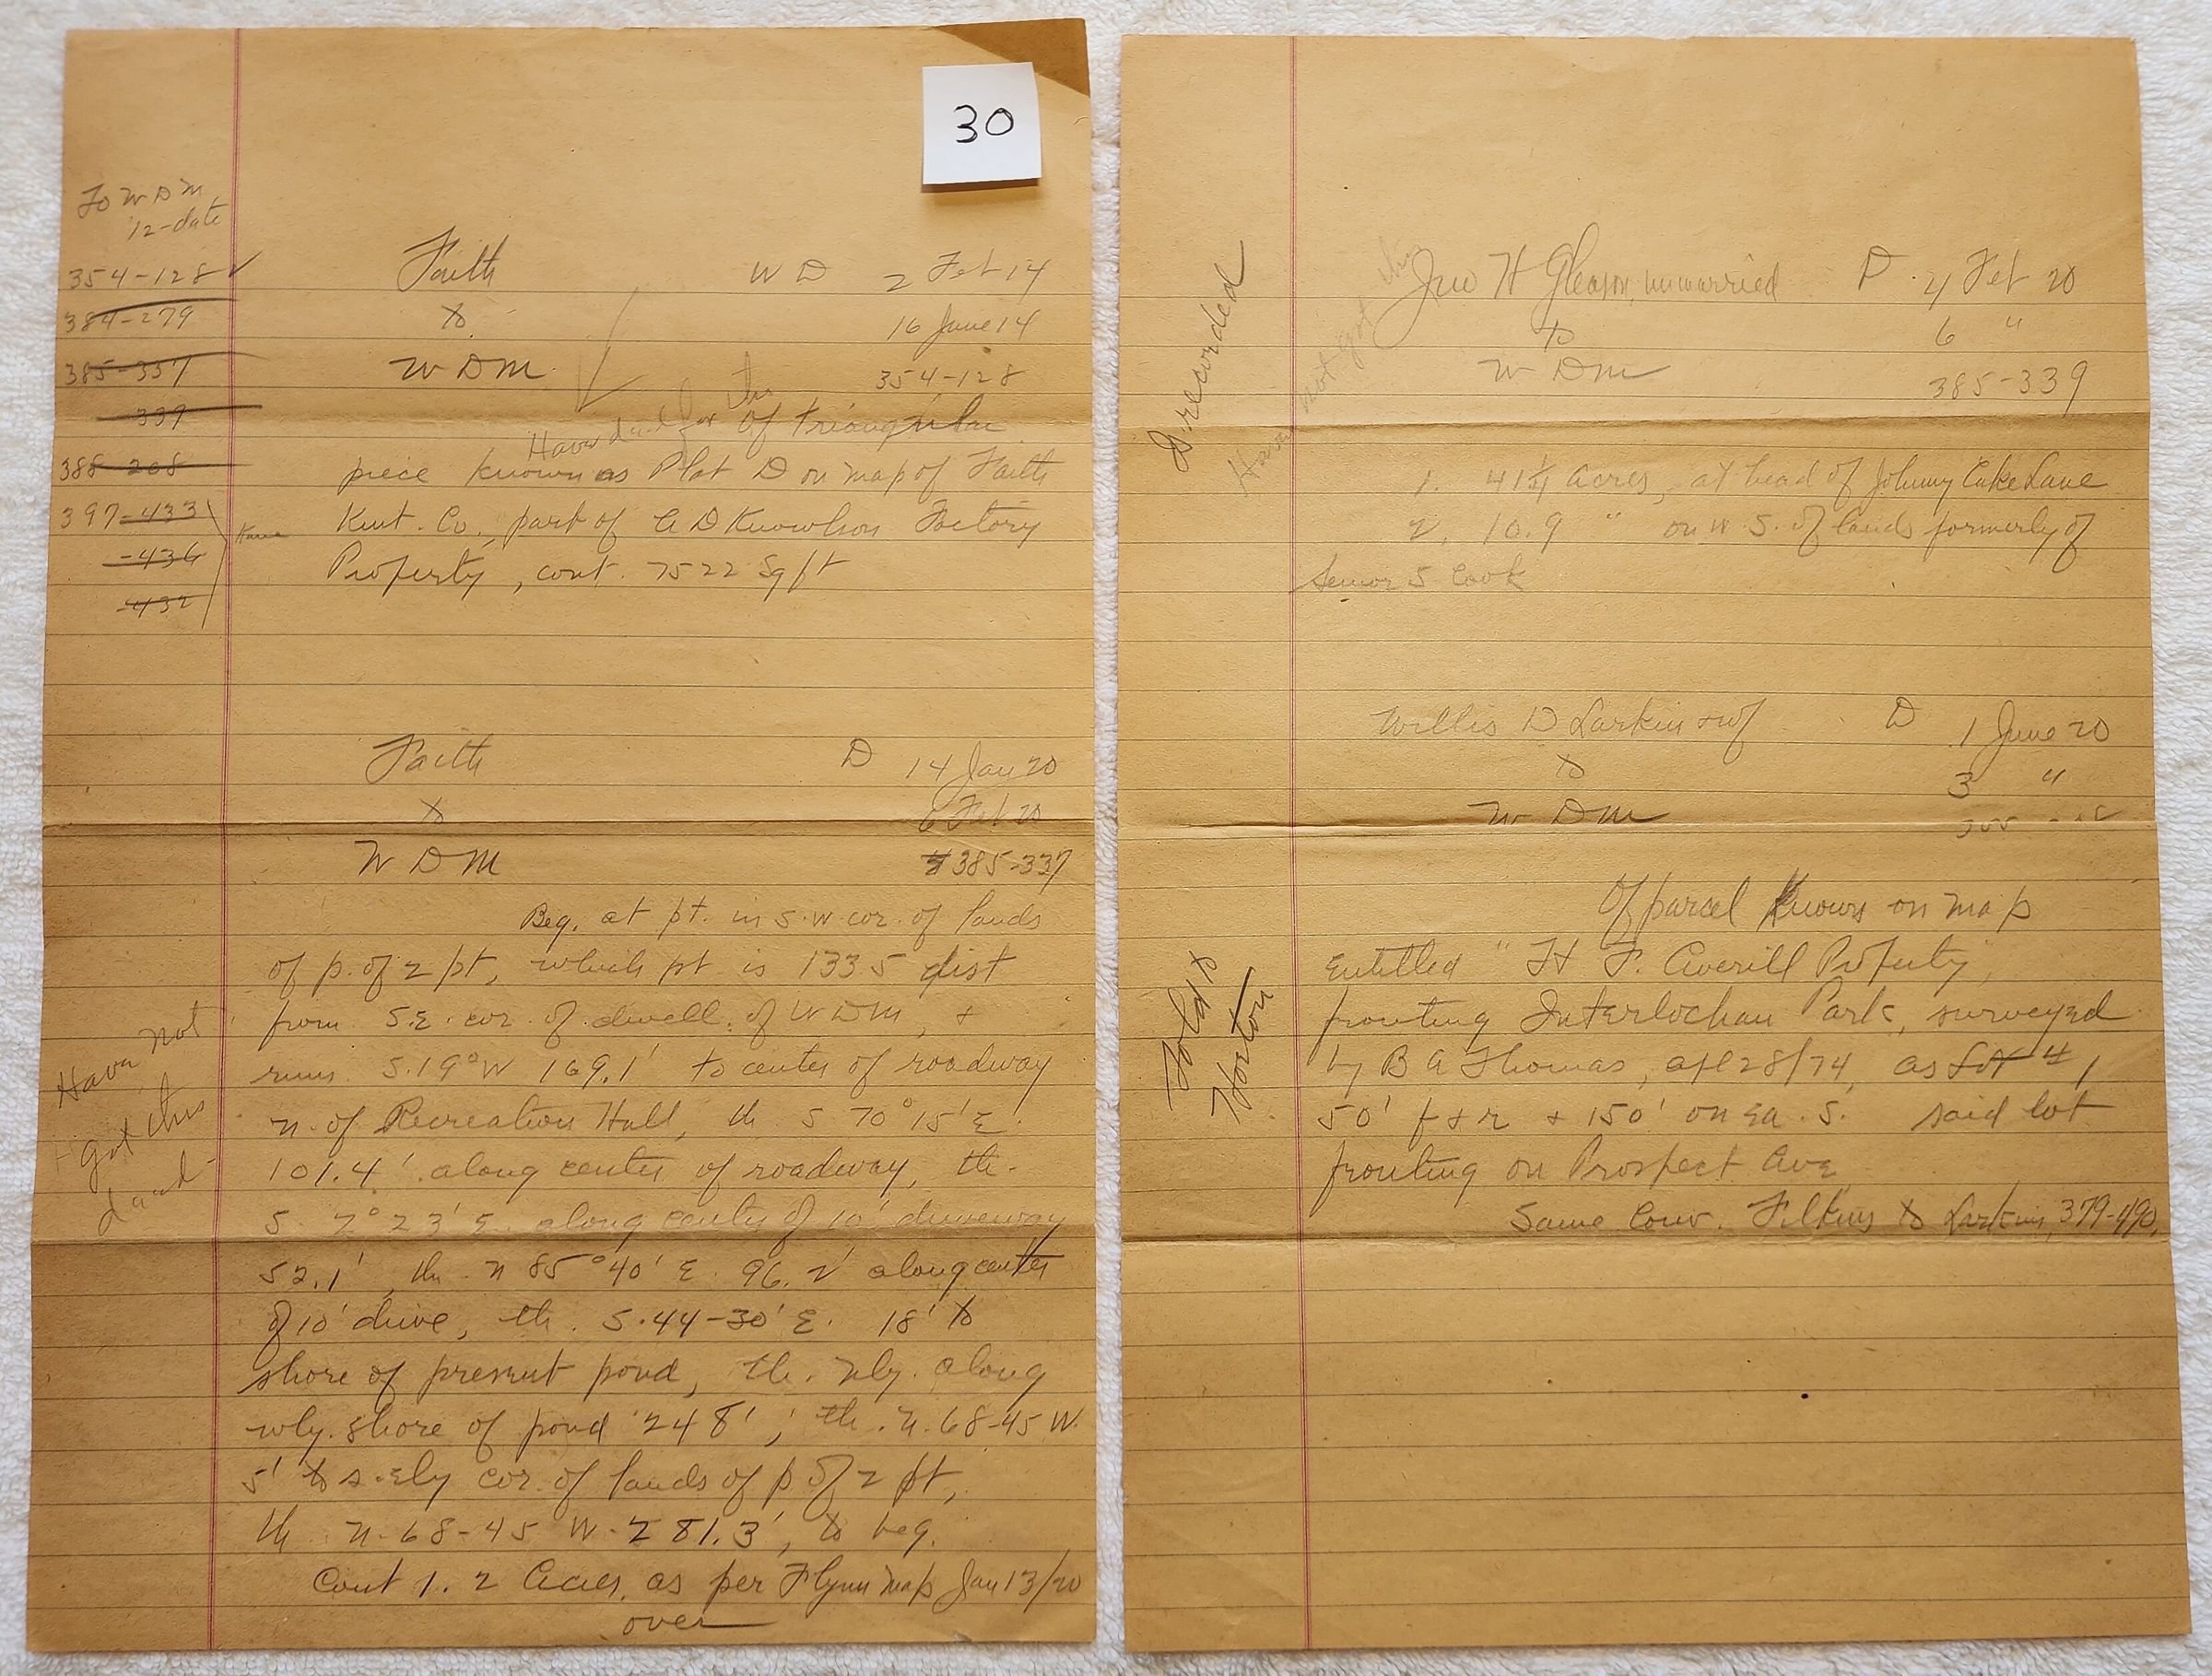 30
To W D M
12-date
354-128 ✓
384-279
385-337
339
388-208
397-433
-436
-432
Faith W D 2 Feb 14
to 16 June 14
W D M 354-128
Have deed for this
Of triangular
piece known as Plat D on map of Faith
Knit. Co., part of A D Knowlson Factory
Property, cont. 7522 Sq ft
Faith D 14 Jan 20
to 6 Feb 20
W D M 385-337
Beg. at pt. in S.W. cor. of lands
of p. of 2 pt, which pt is 133.5 dist
from S.E. cor. of dwell. of W D M, +
runs S.19°W 169.1' to center of roadway
n. of Recreation Hall, th S 70°15' E
101.4' along center of roadway, th.
S. 7°23' E. along center of 10' driveway
52.1', th. N 85°40' E. 96.2' along center
of 10' drive, th. S.44-30' E. 18' to
shore of present pond, th. nly. along
wly. shore of pond 248', th. N.68-45 W.
5' to s.ely cor. of lands of p of 2 pt,
th N-68-45 W-281.3', to beg.
Cont 1.2 Acres, as per Flynn map Jan 13/20
over
Have not
got this
deed-
D. recorded
Have not got this
Jno H Gleason, unmarried D. 4 Feb 20
to 6 "
W D M 385-339
1. 41¼ Acres, at head of Johnny Cake Lane
2. 10.9 " on W.S. of lands formerly of
S Cook
Willis D Larkin + wf D 1 June 20
to 3 "
W D M
Of parcel known on map
entitled "H F. Averill Property",
fronting Interlochan Park, surveyed
by B A Thomas, apl 28/74, as Lot #1,
50' f + r + 150' on ea. S. said lot
fronting on Prospect Ave
Same Conv. Filkins to Larkin, 379-490,
Sold to
Horton